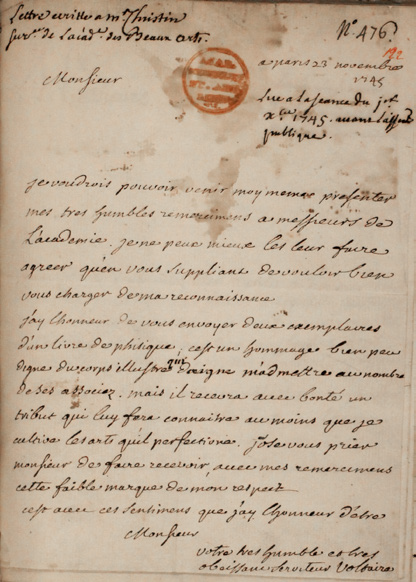 Lettre écritte a mr Thistin
Sur. de Lacad. des Beaux arts.
No 476.
122
a paris 23 novembre
1745
Monsieur
Lue a la seance du
1745. avant lassem
publique.
je voudrois pouvoir venir moy meme presenter
mes tres humbles remercimens a messieurs de
Lacademie. je ne peux mieux les leur faire
agreer qu'en vous suppliant de vouloir bien
vous charger de ma reconnaissance
j'ay lhonneur de vous envoyer deux exemplaires
d'un livre de phisique, c'est un hommage bien peu
digne du corps illustre qui daigne m'admettre au nombre
de ses associez. mais il recevra avec bonté un
tribut qui luy fera connaitre au moins que je
cultive les arts qu'il perfectione. j'ose vous prier
monsieur de faire recevoir, avec mes remercimens
cette faible marque de mon respect
c'est avec ces sentimens que j'ay lhonneur d'etre
Monsieur
votre tres humble et tres
obeissant serviteur Voltaire